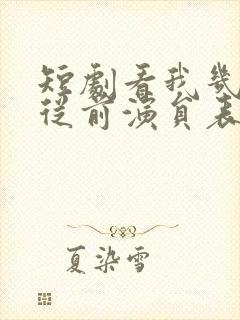 短劇看我幾
從前演員表
夏染雪